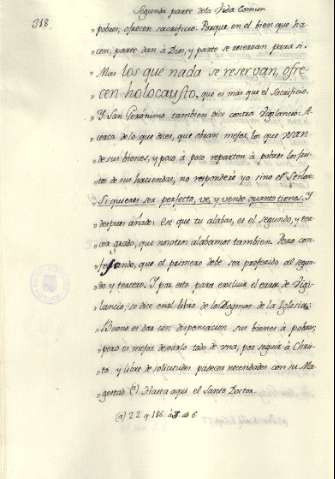 Segunda parte dela Vida Comun
318.
pobres, ofrecen sacrificio. Porque en el bien que ha-
cen, parte dan à Dios, y parte se reservan para si.
Mas los que nada se reservan, ofre
cen holocausto, que es mas que el Sacrificio.
Y San Geronimo tambien dice contra Vigilancio: A-
cerca de lo que dices, que obran mejor los que usan
de sus bienes, y poco à poco reparten à pobres los fru-
tos de sus haciendas, no responderé yo sino el Señor
Si quieres ser perfecto, ve, y vende quanto tienes. Y
despues añade: Ese que tu alabas, es el segundo, y ter-
cer grado, que nosotros alabamos tambien. Pero con-
fesando, que el primero debe ser preferido al segun
do y tercero. Y por esto para excluir el error de Vigi-
lancio, se dice en el libro de los Dogmas de la Iglesia:
Bueno es dar con dispensacion sus bienes à pobres;
pero es mejor desviarlo todo de una, por seguir à Chris-
to y libre de solicitudes padecer necesidades con su Ma-
gestad (a) Hasta aqui el Santo Doctor.
(a) 2.2 q 186 a ad 6